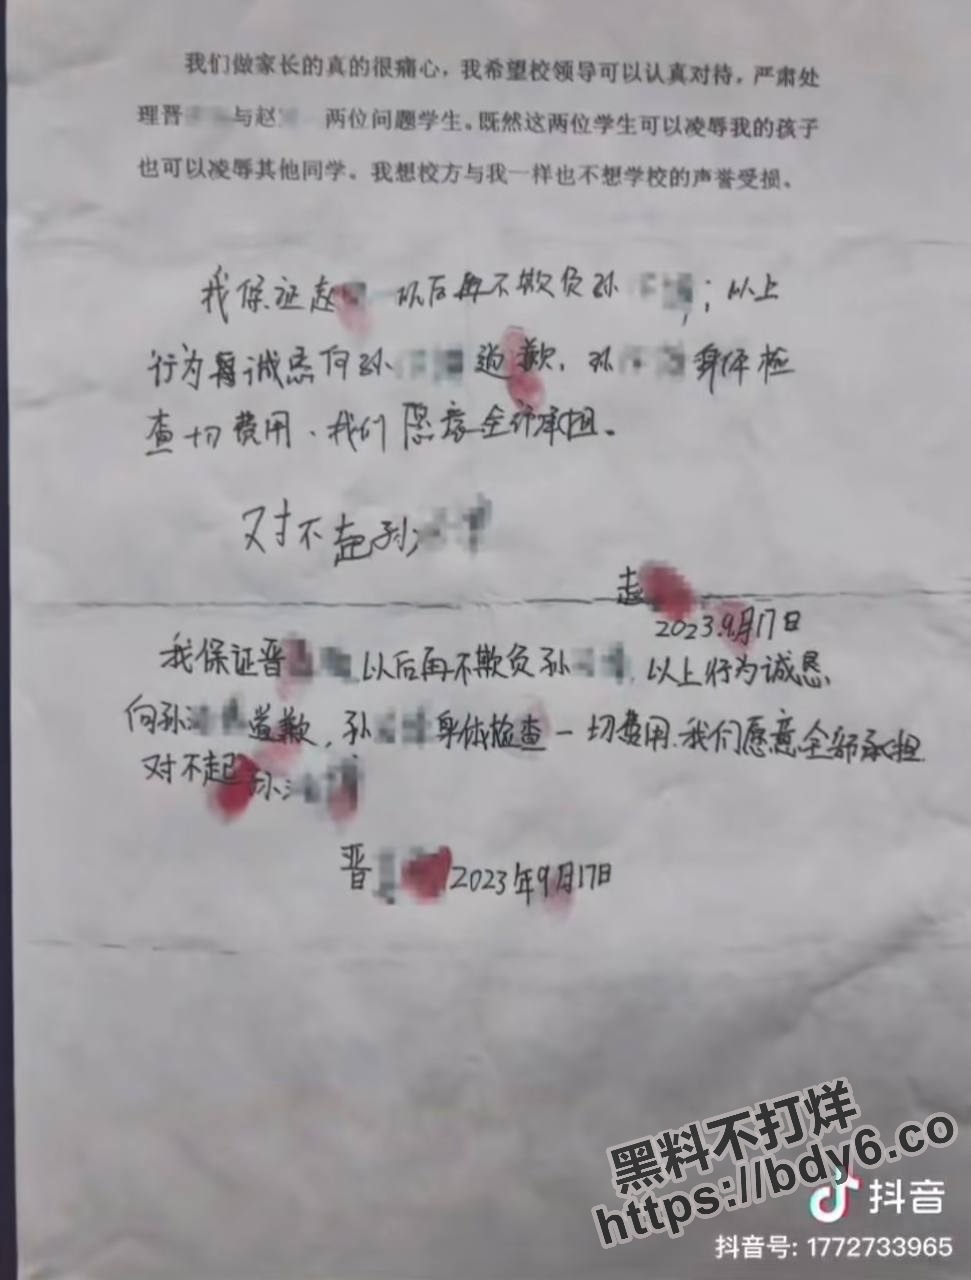 我们做家长的真的很痛心，我希望校领导可以认真对待，严肃处
理晋 与赵 两位问题学生。既然这两位学生可以凌辱我的孩子
也可以凌辱其他同学。我想校方与我一样也不想学校的声誉受损。
我保证赵 以后再不欺负孙 ；以上
行为 诚恳向孙 道歉，孙 身体检
查一切费用、我们愿意全部承担。
对不起孙
赵
2023.9月17日
我保证晋 以后再不欺负孙 ，以上行为诚恳
向孙 道歉，孙 身体检查一切费用、我们愿意全部承担
对不起孙
晋 2023年9月17日
黑料不打烊
https://bdy6.co
抖音
抖音号: 1772733965